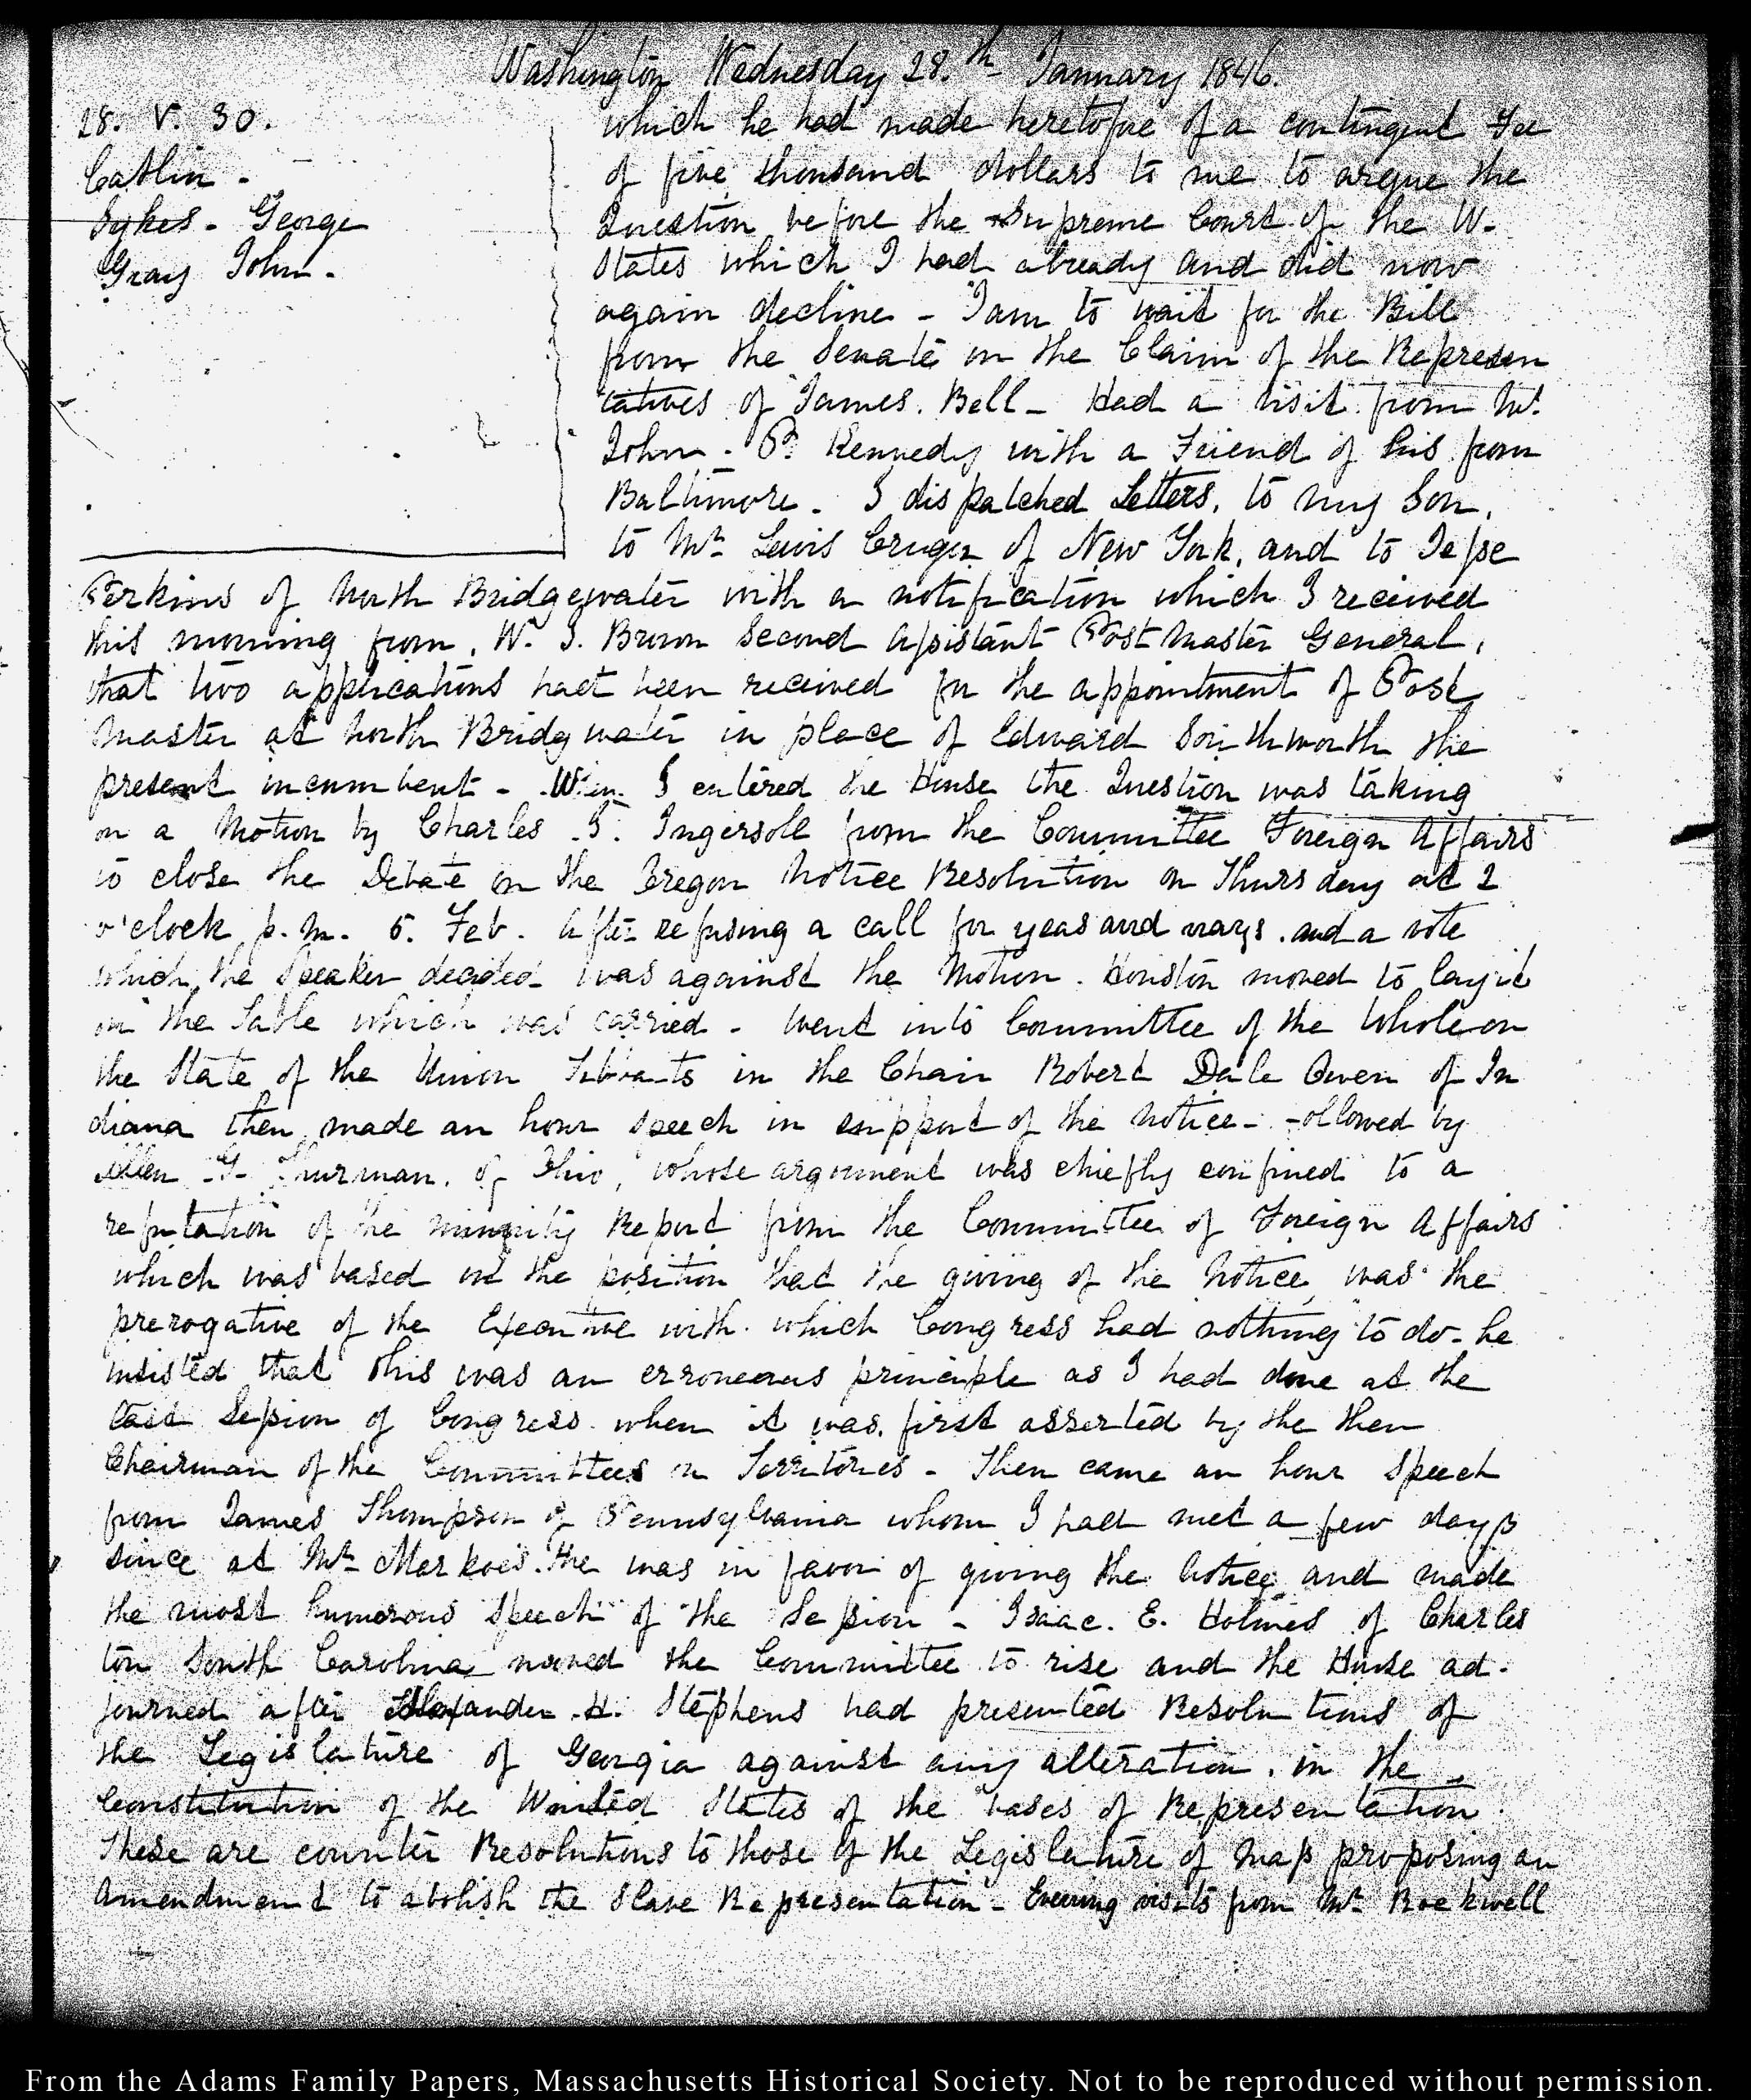 Washington Wednesday 28.th January 1846.
28. V. 30.
Catlin.
Sykes - George
Gray John.
which he had made heretofore of a contingent Fee
of five thousand dollars to me to argue the
Question before the Supreme Court of the U.
States which I had already and did now
again decline - I am to wait for the Bill
from the Senate on the Claim of the Represen
tatives of James Bell - Had a visit from Mr.
John. P. Kennedy with a Friend of his from
Baltimore. I dispatched Letters, to my Son,
to Mr. Lewis Cruger of New York, and to Jesse
Perkins of North Bridgewater with a notification which I received
this morning from W. J. Brown Second Assistant Post Master General,
that two applications had been received for the appointment of Post
Master at North Bridgwater in place of Edward Southworth the
present incumbent - When I entered the House the Question was taking
on a Motion by Charles J. Ingersoll from the Committee Foreign Affairs
to close the Debate on the Oregon Notice Resolution on Thursday at 2
o'clock p.m. 5. Feb. After refusing a call for yeas and nays and a vote
which the Speaker decided was against the Motion. Houston moved to lay it
on the Table which was carried - Went into Committee of the Whole on
the State of the Union Tibbatts in the Chair Robert Dale Owen of In
diana then made an hour speech in support of the Notice - followed by
Allen G. Thurman of Ohio, whose argument was chiefly confined to a
refutation of the minority Report from the Committee of Foreign Affairs
which was based on the position that the giving of the Notice was the
prerogative of the Executive with which Congress had nothing to do - he
insisted that this was an erroneous principle as I had done at the
last Session of Congress when it was first asserted by the then
Chairman of the Committees on Territories - Then came an hour speech
from James Thompson of Pennsylvania whom I had met a few days
since at Mr. Markoe's. He was in favor of giving the Notice and made
the most humorous speech of the Session - Isaac. E. Holmes of Charles
ton South Carolina moved the Committee to rise and the House ad-
journed after Alexander H. Stephens had presented Resolutions of
the Legislature of Georgia against any alteration in the
Constitution of the United States of the bases of Representation
These are counter Resolutions to those of the Legislature of Mass proposing an
Amendment to abolish the Slave Representation - Evening visits from Mr. Rockwell
From the Adams Family Papers, Massachusetts Historical Society. Not to be reproduced without permission.